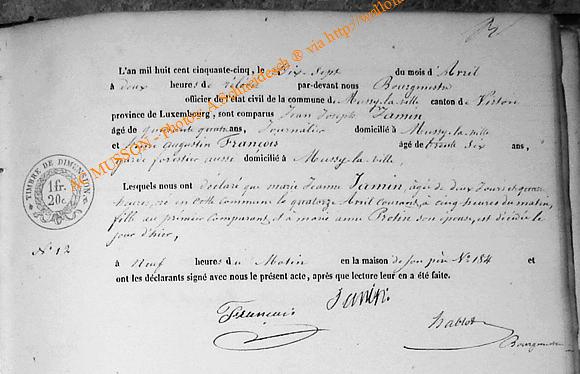 L'an mil huit cent cinquante-cinq, le Dix-Sept du mois d'Avril
à deux heures de relevée par-devant nous Bourgmestre
officier de l'état civil de la commune de Mussy-la-ville canton de Virton
province de Luxembourg, sont comparus Jean Joseph Jamin
âgé de quarante quatre ans, Journalier domicilié à Mussy-la-ville
et Augustin François âgé de trente Six ans,
garde forestier aussi domicilié à Mussy-la-ville,
Lesquels nous ont déclaré que marie Jeanne Jamin, âgée de deux Jours et quatre
heures, née en cette Commune le quatorze Avril courant, à cinq heures du matin,
fille au premier Comparant, et à marie anne Protin son épouse, est décédée
le jour d'hier,
à neuf heures du Matin en la maison de son père N° 184 et
ont les déclarants signé avec nous le présent acte, après que lecture leur en a été faite.
TIMBRE DE DIMENSION
1 fr.
20c.
N° 12
François
Jamin
Hablot
Bourgmestre
MUSSON - Photos A.Schreidesch ® via http://wallon